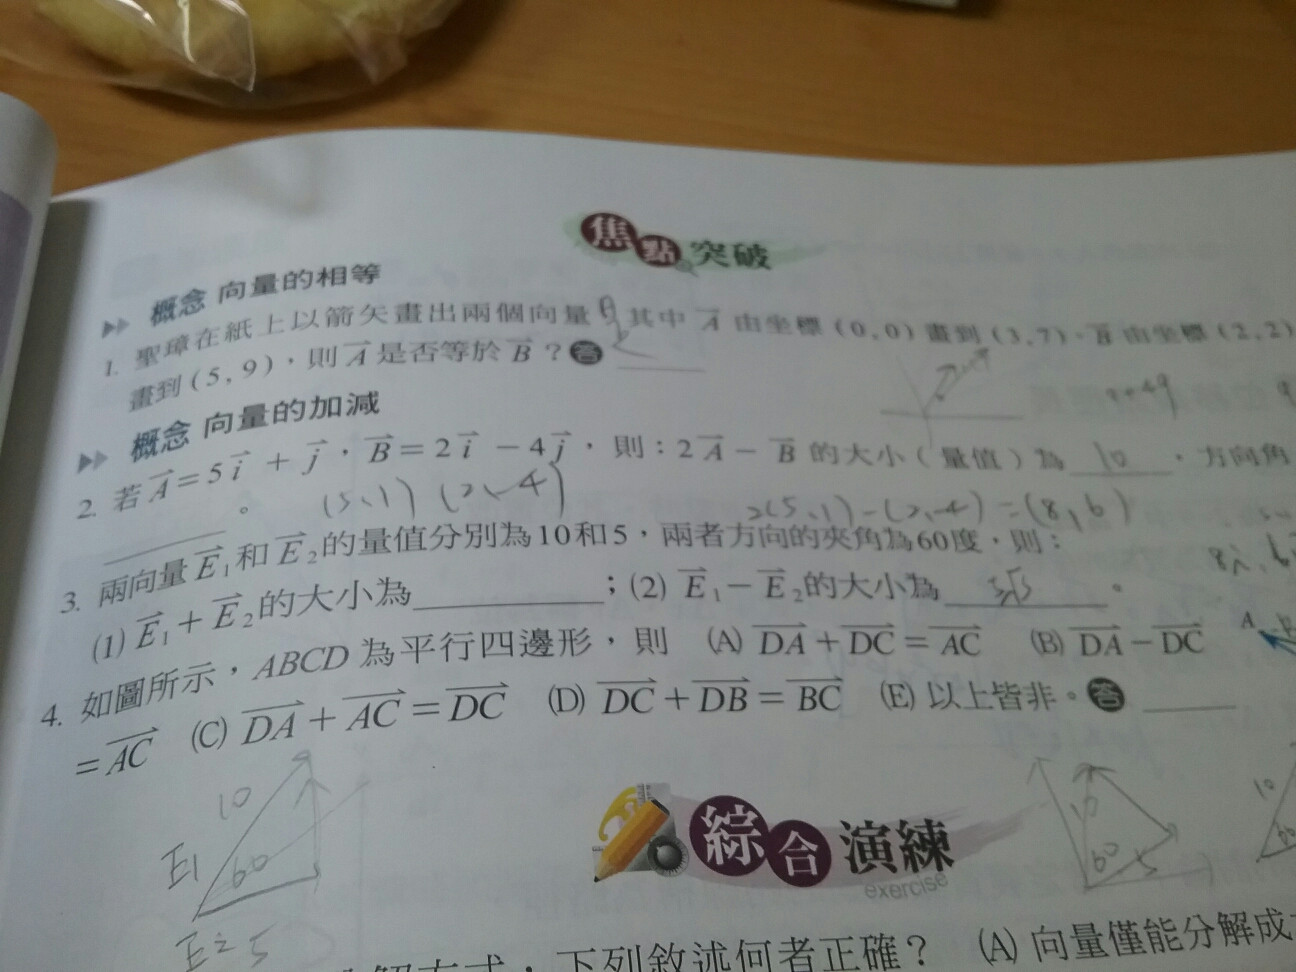 焦點突破
概念 向量的相等
1. 聖璋在紙上以箭矢畫出兩個向量,其中 A 由坐標(0,0)畫到(3,7),B 由坐標(2,2)
畫到(5,9),則 A 是否等於 B?答
概念 向量的加減
2. 若 A=5i + j,B=2i -4j,則:2A - B 的大小(量值)為 10 ,方向角
。 (5,1) 2(5,1)-(2,-4)=(8,6)
3. 兩向量 E1 和 E2 的量值分別為10和5,兩者方向的夾角為60度,則:
(1) E1+E2 的大小為 ;(2) E1-E2 的大小為 。
4. 如圖所示,ABCD 為平行四邊形,則 (A) DA+DC=AC (B) DA-DC
=AC (C) DA+AC=DC (D) DC+DB=BC (E) 以上皆非。答
A
10
E1
60
10
60
5
10
綜合演練
exercise
下列敘述何者正確? (A) 向量僅能分解成